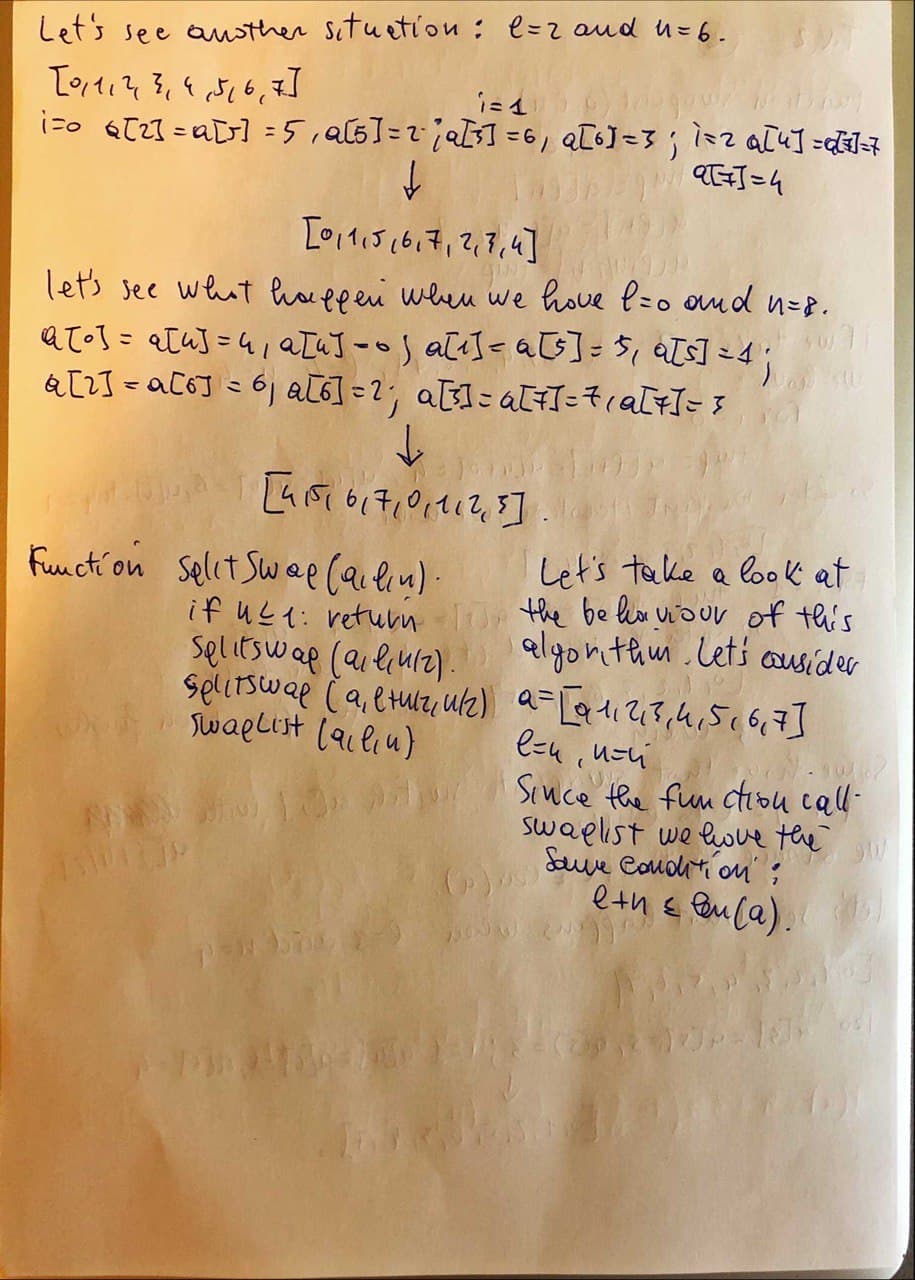 Let's see another situation: l=2 and n=6.
[0,1,2,3,4,5,6,7]
i=1
i=0 a[2]=a[5]=5, a[5]=2; a[3]=6, a[6]=3; i=2 a[4]=a[7]=7
a[7]=4
↓
[0,1,5,6,7,2,3,4]
let's see what happen when we have l=0 and n=8.
a[0]=a[4]=4, a[4]=0; a[1]=a[5]=5, a[5]=1;
a[2]=a[6]=6, a[6]=2; a[3]=a[7]=7, a[7]=3
↓
[4,5,6,7,0,1,2,3].
Function SplitSwap(a,l,n).
if n≤1: return
Splitswap(a,l,n/2).
splitswap(a,l+n/2,n/2)
swapList(a,l,n)
Let's take a look at
the behaviour of this
algorithm. Let's consider
a=[0,1,2,3,4,5,6,7]
l=4, n=4
Since the function call
swaplist we have the
same condition:
l+n ≤ len(a).